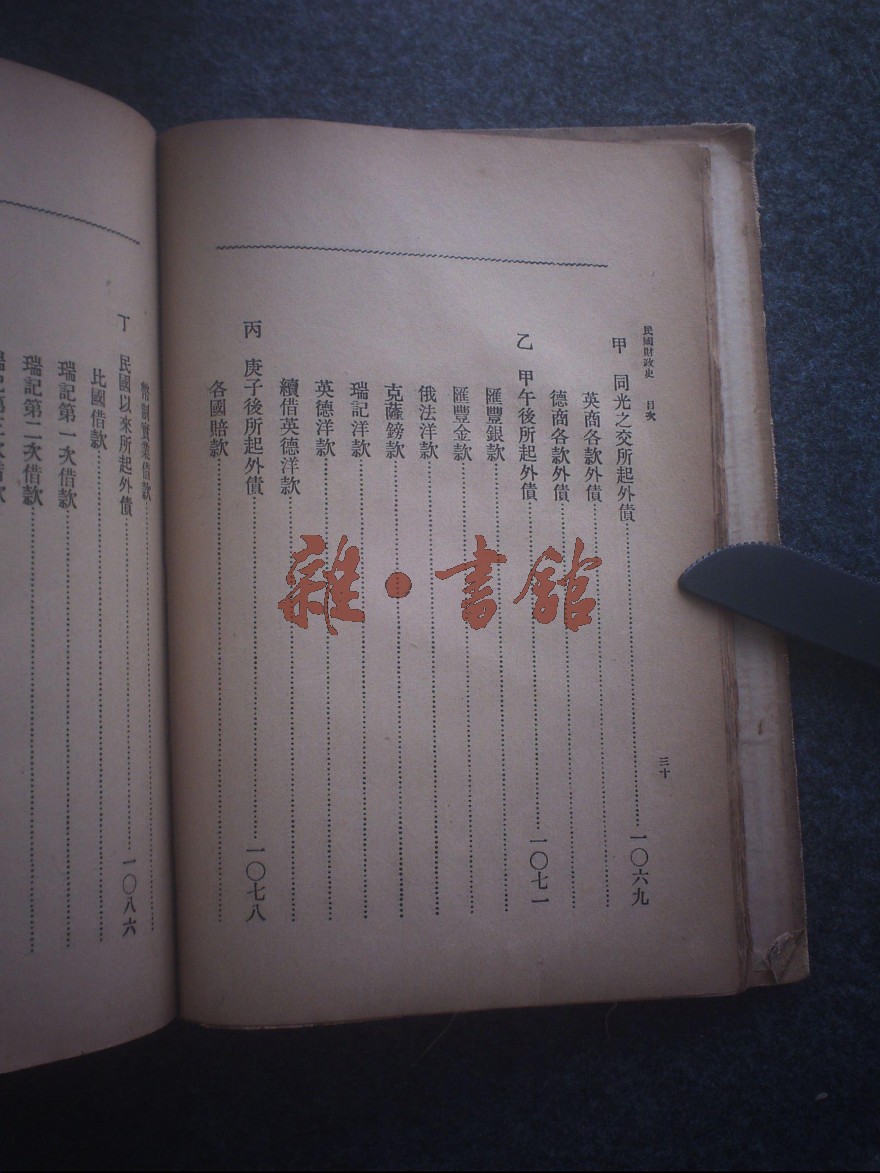 民國財政史 目次
三十
甲 同光之交所起外債……一〇六九
英商各款外債……
德商各款外債……
乙 甲午後所起外債……一〇七一
匯豐銀款……
匯豐金款……
俄法洋款……
克薩鎊款……
瑞記洋款……
英德洋款……
續借英德洋款……
丙 庚子後所起外債……一〇七八
各國賠款……
幣制實業借款……
丁 民國以來所起外債……一〇八六
比國借款……
瑞記第一次借款……
瑞記第二次借款……
瑞記第三次借款
雜·書館